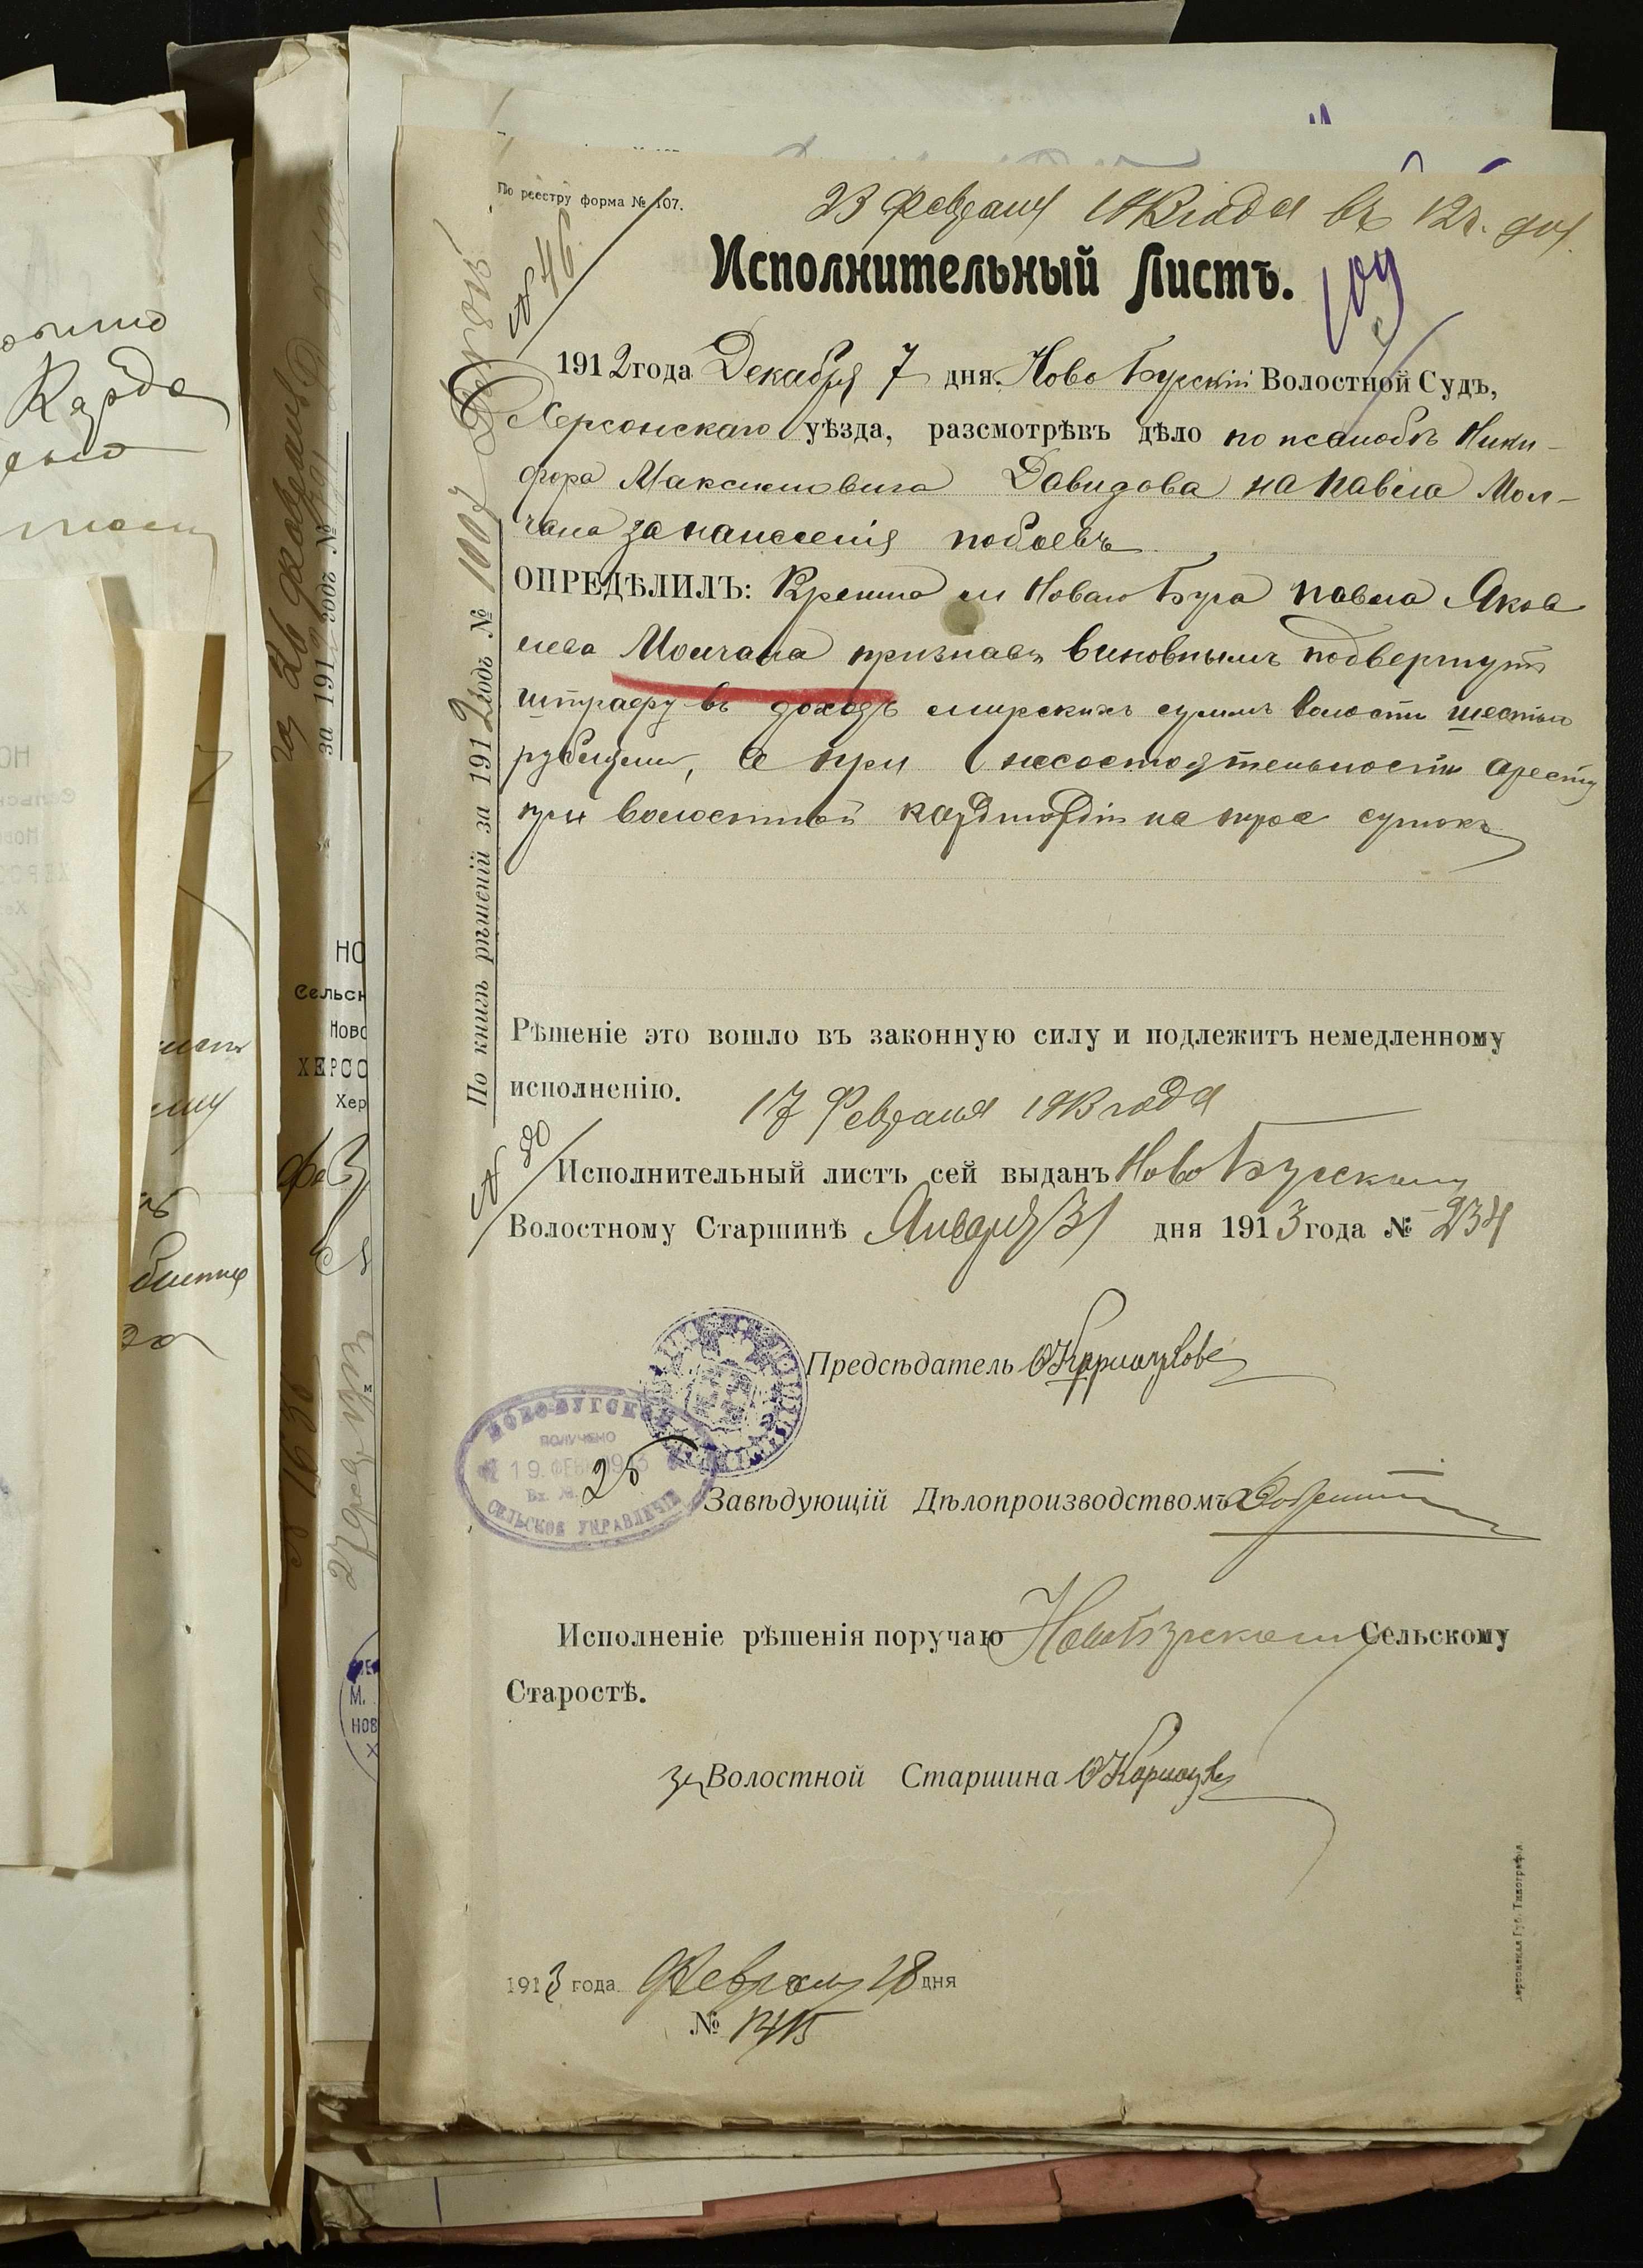 По реестру форма № 107.
23 Февраля 1913 года въ 12 ч. дня.
№ 46
Исполнительный Листъ.
109
1912 года Декабря 7 дня. Ново Бугскій Волостной Судъ,
Херсонскаго уѣзда, разсмотрѣвъ дѣло по жалобѣ Ники-
фора Максимовича Давидова на Павла Мол-
чана за нанесенія побоевъ
ОПРЕДѢЛИЛЪ: Крестьянина м Новаго Буга Павла Яков
лева Молчана признавъ виновнымъ подвергнуть
штрафу въ доходъ мирскихъ суммъ волости шестью
рублями, а при несостоятельности аресту
при волостной на трое сутокъ
По книгѣ рѣшеній за 1912 годъ № 1007
Рѣшеніе это вошло въ законную силу и подлежитъ немедленному
исполненію.
17 Февраля 1913 года
№ 90
Исполнительный листъ сей выданъ Ново Бугскому
Волостному Старшинѣ Января 31 дня 1913 года № 234
Предсѣдатель
НОВО-БУГСКОЕ
ПОЛУЧЕНО
19. ФЕВ 1913
Вх. №
25
СЕЛЬСКОЕ УПРАВЛЕНІЕ
Завѣдующій Дѣлопроизводствомъ
Исполненіе рѣшенія поручаю НовоБугскому Сельскому
Старостѣ.
За Волостной Старшина
1913 года Февраля 18 дня
№ 1415
Херсонская Губ. Типографія
за 191 годъ №
НО
Сельск
Ново
ХЕРСО
Хер
М.
НОВ
Х